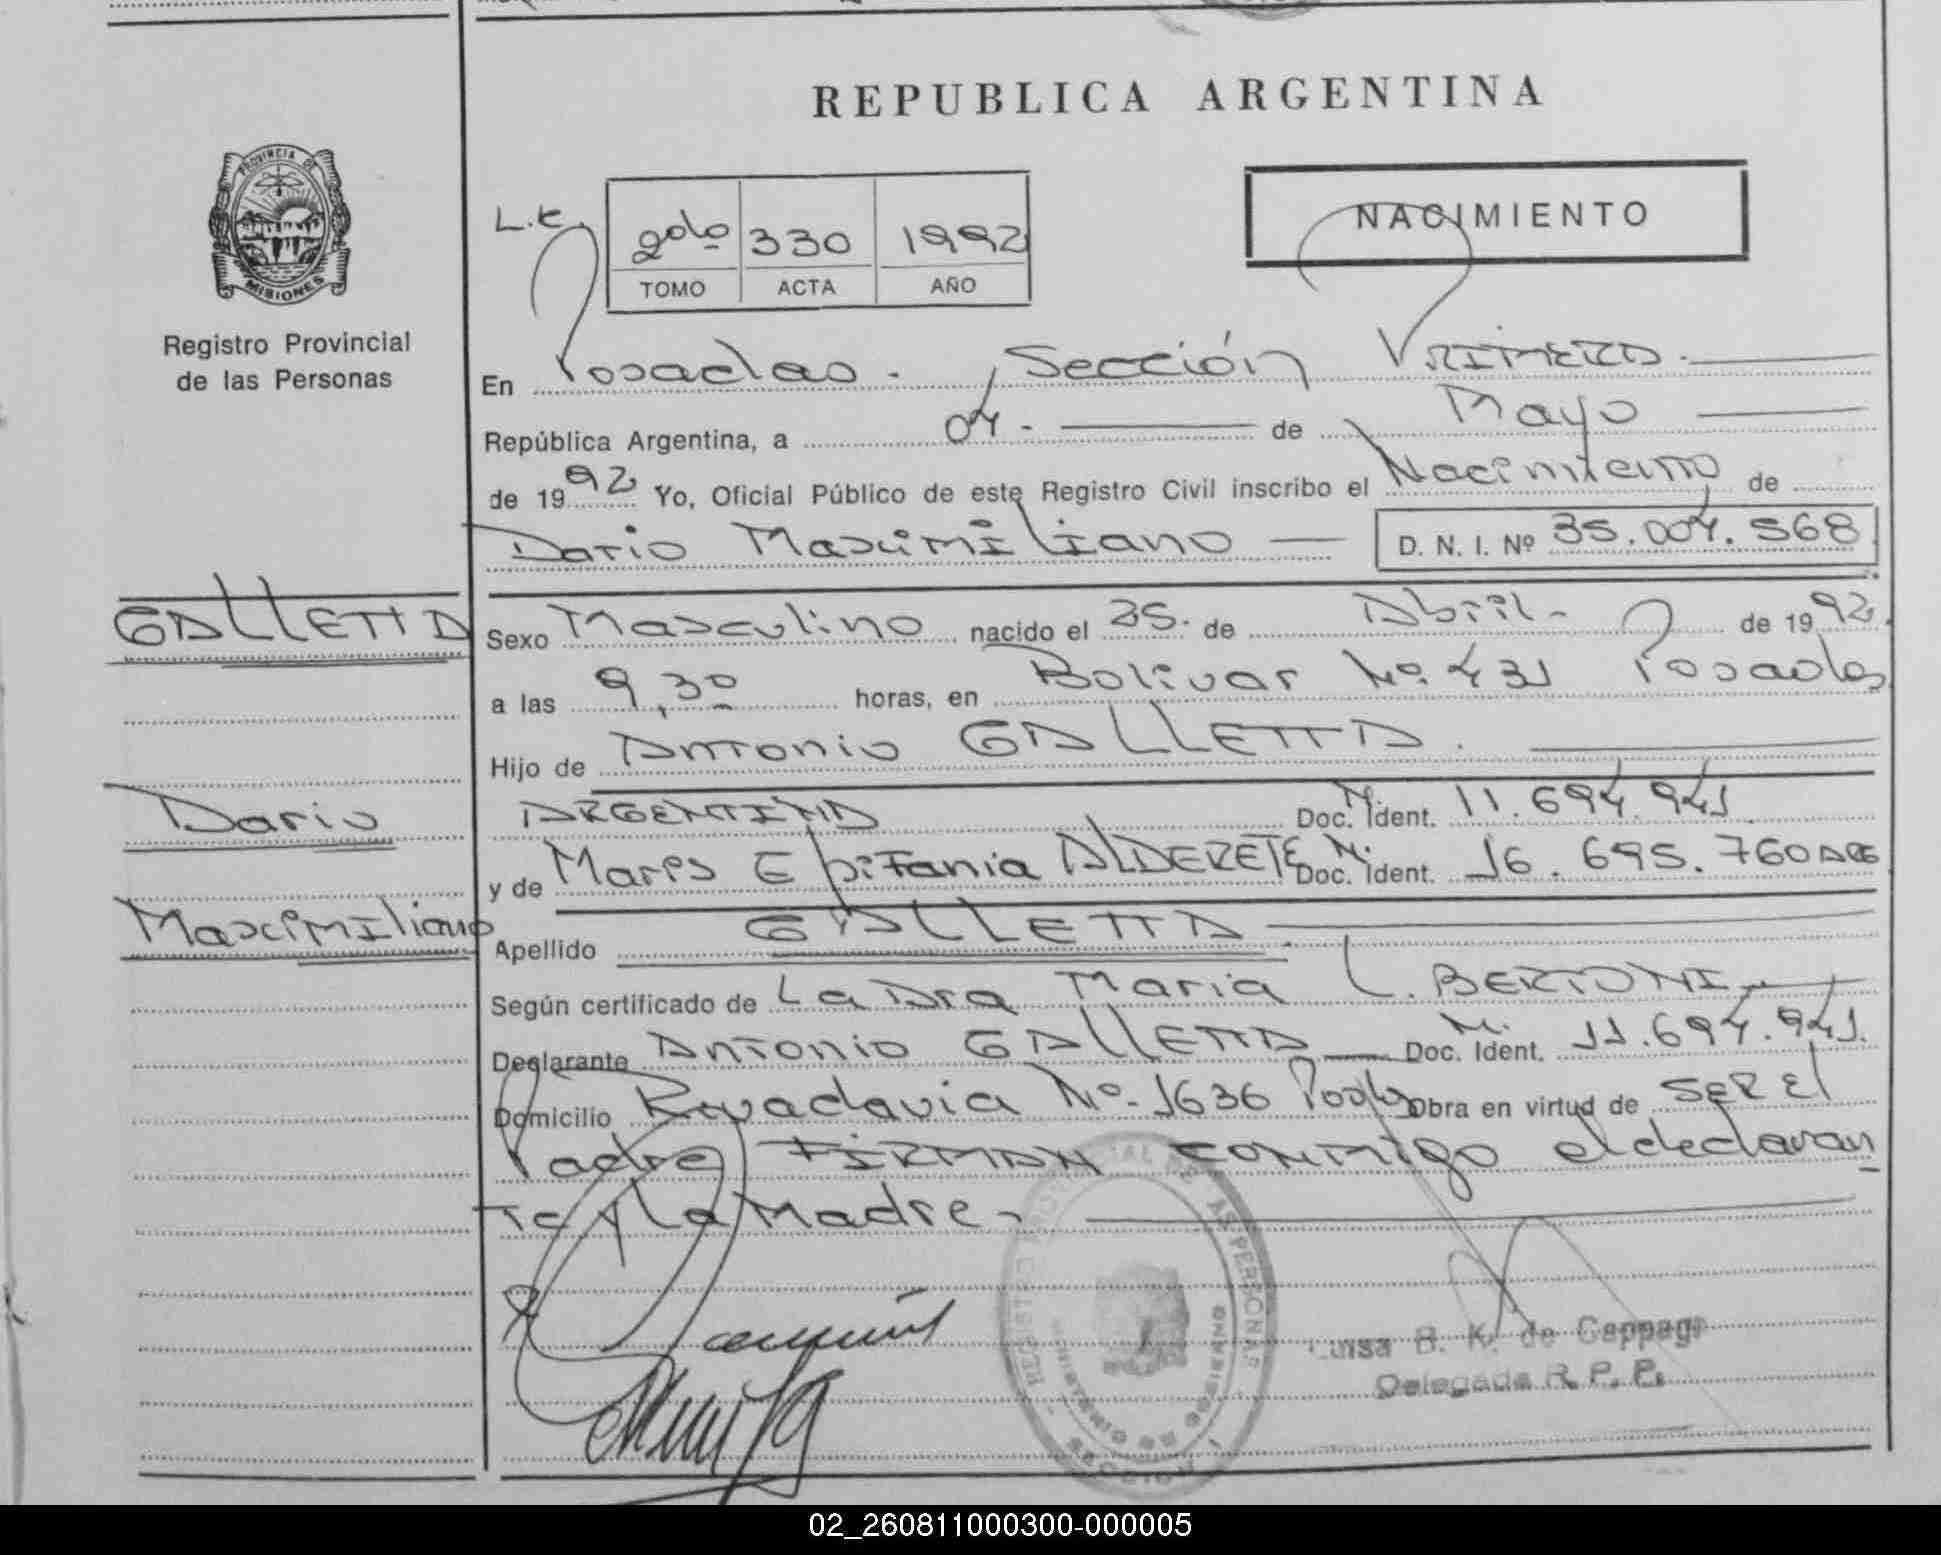 REPUBLICA ARGENTINA
PROVINCIA DE
MISIONES
Registro Provincial
de las Personas
L.E.
2do 330 1992
TOMO ACTA AÑO
NACIMIENTO
En Posadas. Sección PRIMERA.
República Argentina, a 04. de Mayo
de 1992 Yo, Oficial Público de este Registro Civil inscribo el Nacimiento de
Dario Maximiliano D. N. I. Nº 35.004.568
GALLETTA
Sexo Masculino nacido el 25. de Abril de 1992.
a las 9,30 horas, en Bolivar Nº 431 Posadas
Hijo de Antonio GALLETTA.
Dario
ARGENTINA Doc. Ident. M. 11.694.941
y de María Epifania ALDERETE Doc. Ident. M. 16.695.760 ARG
Maximiliano
Apellido GALLETTA
Según certificado de La Dra Maria L. BERTONI
Declarante Antonio GALLETTA Doc. Ident. M. 11.694.941.
Domicilio Rivadavia Nº 1636 Obra en virtud de SER El
Padre FIRMAN conmigo el declaran
te y La Madre.
REGISTRO PROVINCIAL DE LAS PERSONAS
MINISTERIO DE GOBIERNO
SECCION 1
Luisa B. K. de
Delegada R. P. P.
02_260811000300-000005